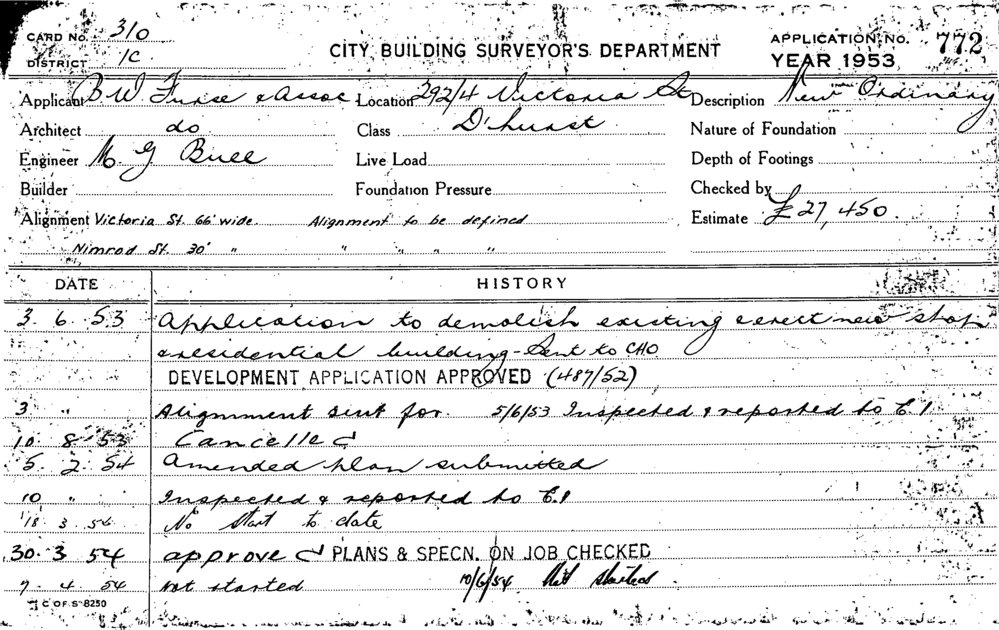 CARD NO. 310
DISTRICT 1C
CITY BUILDING SURVEYOR'S DEPARTMENT
APPLICATION NO. 772
YEAR 1953
Applicant B W Furse & Assoc Location 292/4 Victoria St Description New Ordinary
Architect do Class D'hurst Nature of Foundation
Engineer M G Buee Live Load Depth of Footings
Builder Foundation Pressure Checked by
Alignment Victoria St. 66' wide. Alignment to be defined Estimate £27,450.
Nimrod St. 30' " " " " "
DATE HISTORY
3. 6. 53 Application to demolish existing & erect new shop
& residential building - Sent to CHO
DEVELOPMENT APPLICATION APPROVED (487/52)
3 " Alignment sent for. 5/6/53 Inspected & reported to E.I
10 8 53 Cancelled
5. 2. 54 Amended plan submitted
10 " Inspected & reported to E.I
18 3 54 No start to date
30. 3 54 approved PLANS & SPECN. ON JOB CHECKED
7. 4. 54 not started 10/6/54 Not started.
C OF S 8250